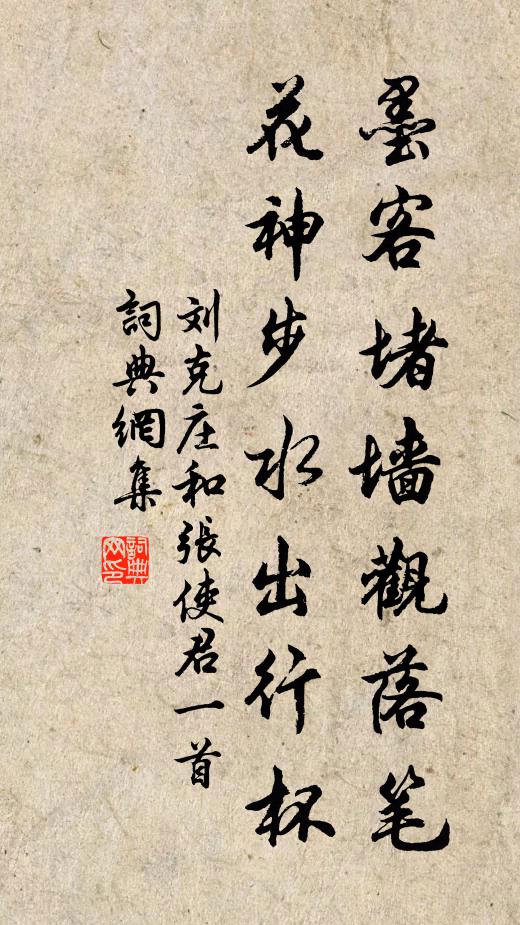 墨客堵墙觀落笔
花神步水出行杯
刘克庄和張使君一首
詞典網集
詞典
网印